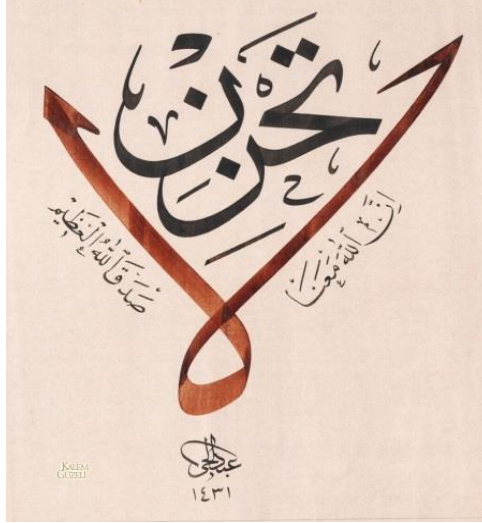 لا تحزن
إِنَّ اللّٰهَ مَعَنَا
صَدَقَ اللّٰهُ الْعَظِيْم
عبدالحي
١٤٣١
KALEM
GÜZELİ